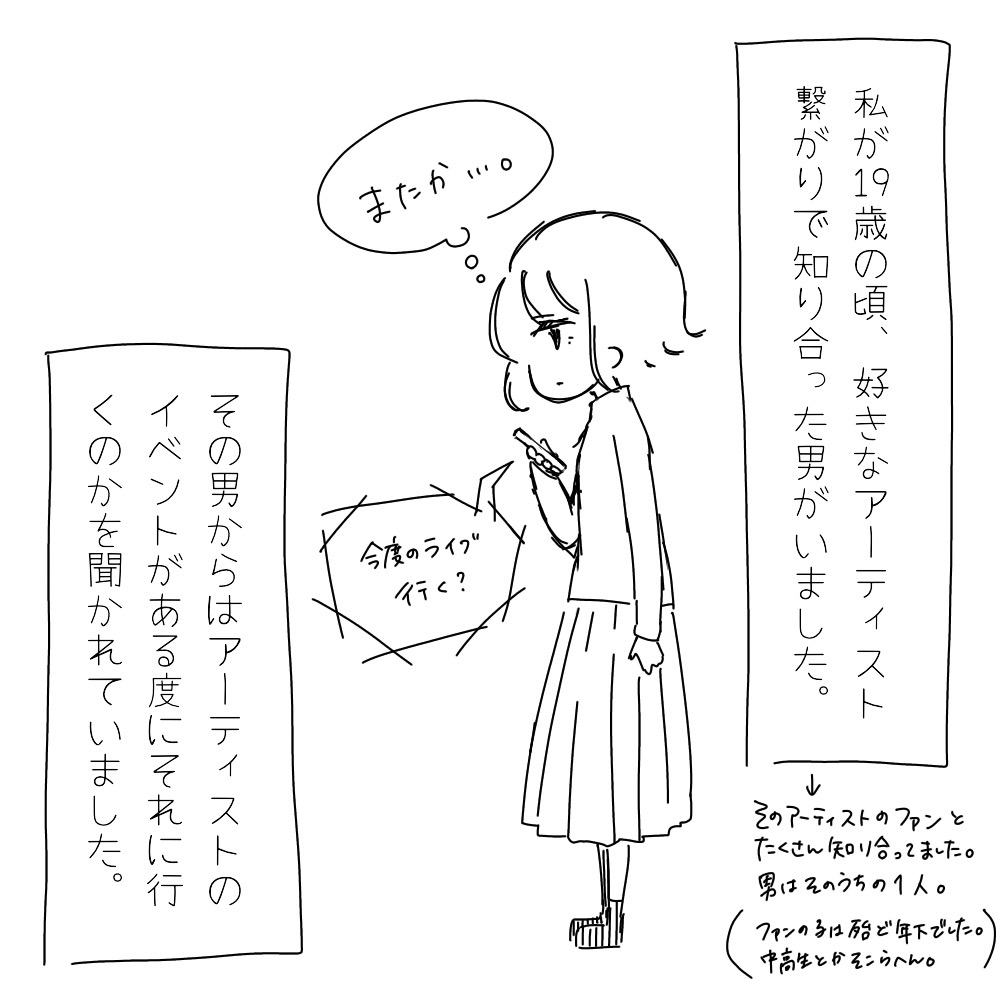 私が19歳の頃、好きなアーティスト
繋がりで知り合った男がいました。
↓
そのアーティストのファンと
たくさん知り合ってました。
男はそのうちの1人。
(ファンの子は殆ど年下でした。
中高生とかそこらへん。)
またか…。
今度のライブ
行く?
その男からはアーティストの
イベントがある度にそれに行
くのかを聞かれていました。